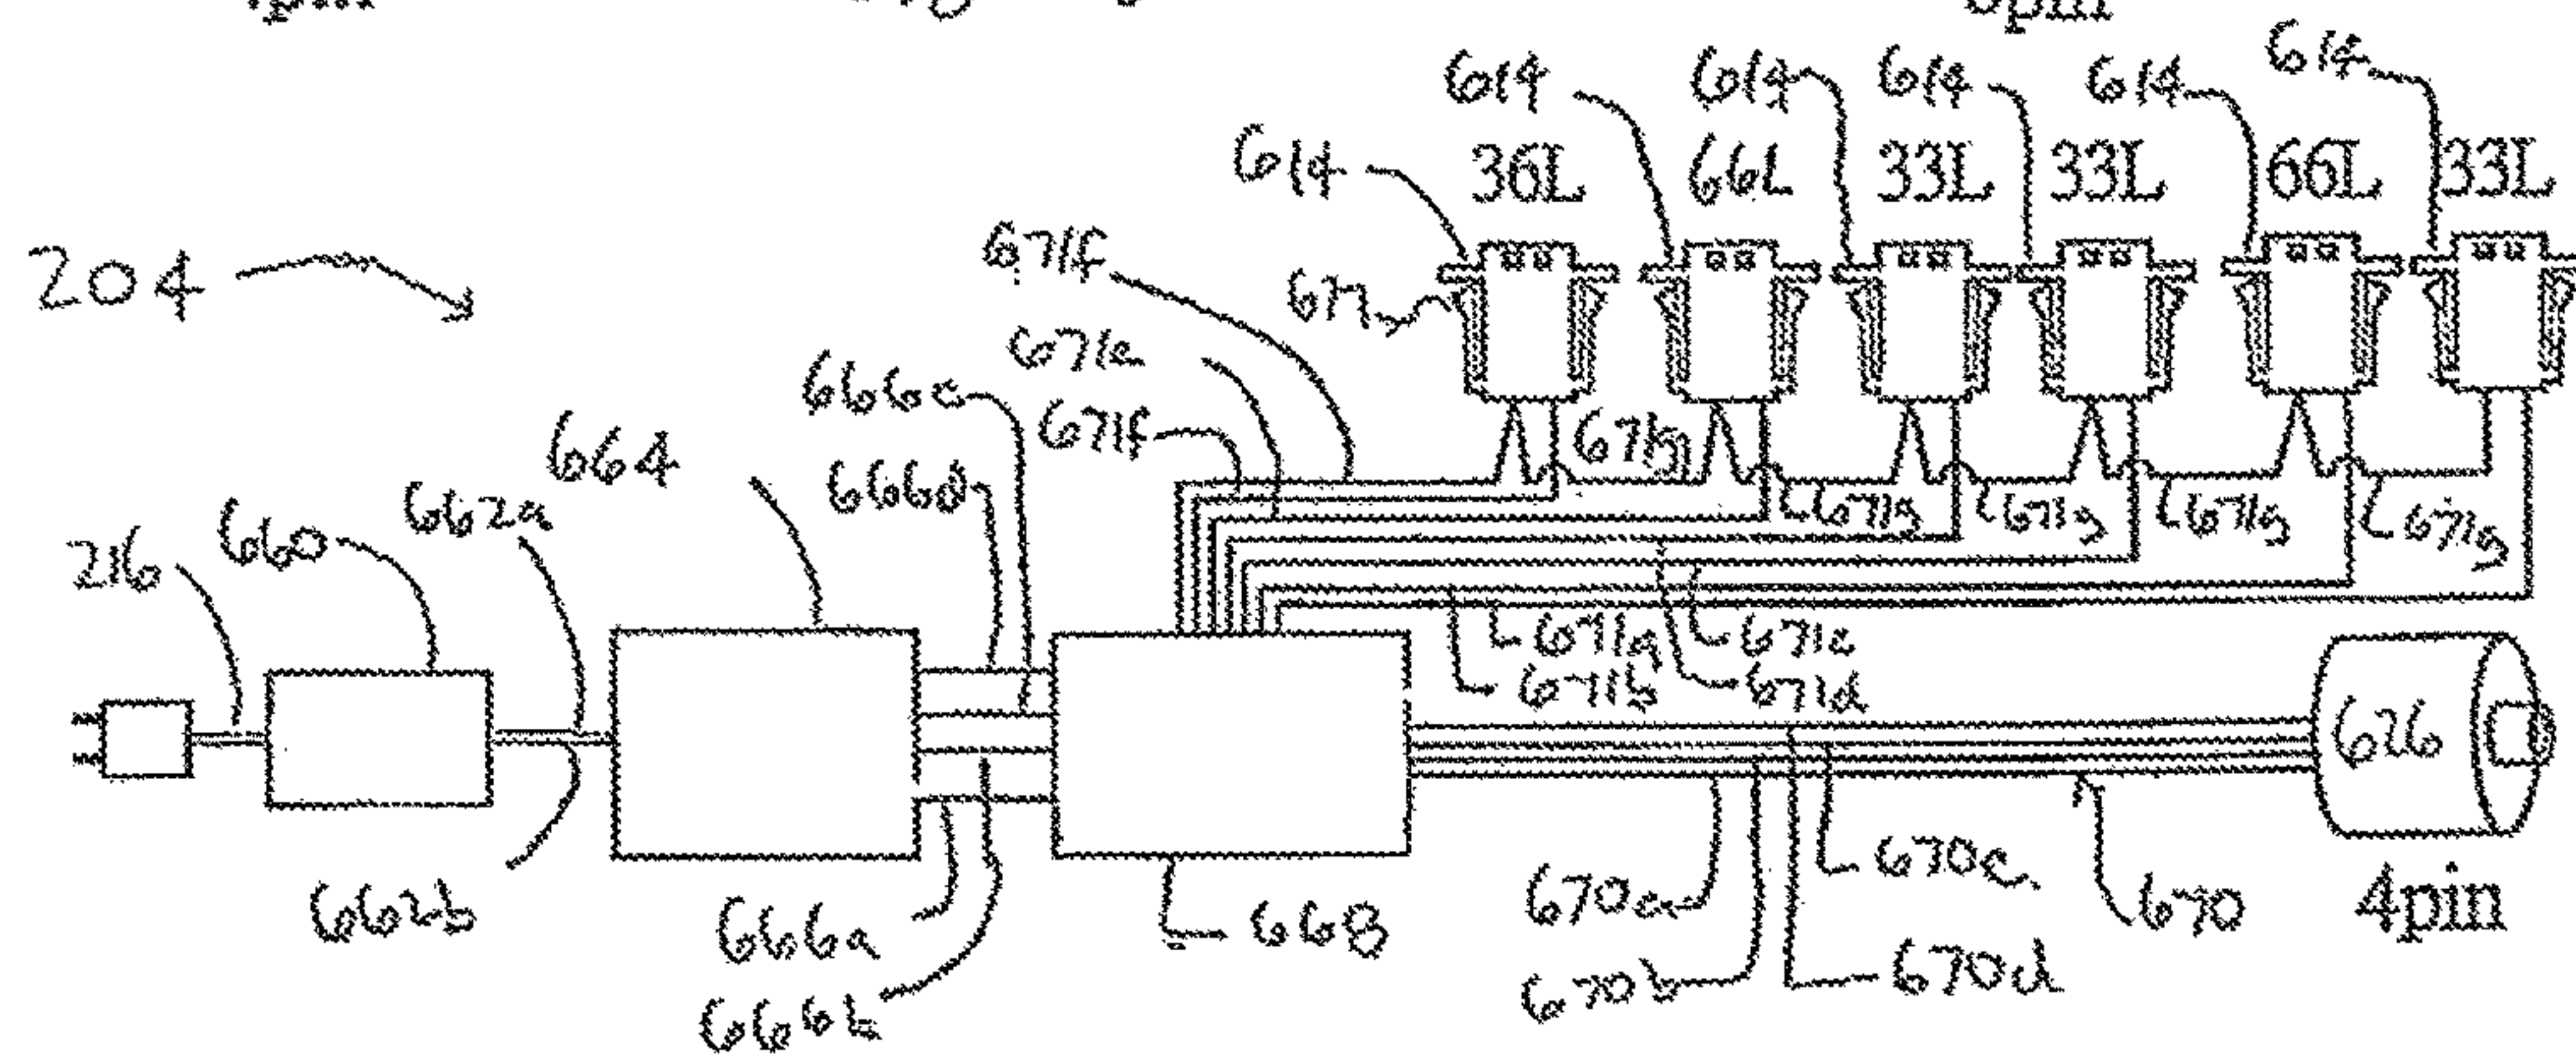 614 614 614 614 614
614 36L 66L 33L 33L 66L 33L
204
671f
671
671e
666c
671f
664
666d
662a
216 660
671g 671g 671g 671g
671a 671c
671b 671d
626
662b
666a
668
670a 670c
670 4pin
670b 670d
666b